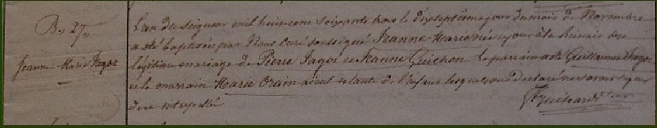 B. 27.
Jeanne Marie Jagot
L'an du seigneur mil huit cent soixante trois le dix septieme jour du mois de Novembre
a été baptisée par Nous Curé soussigné Jeanne Marie née ce jour à la Huinais du
légitime mariage de Pierre Jagot et Jeanne Guichon le parrain a été Guillaume Jagot
et la marraine Marie Orain tante de l'enfant lesquels ont déclaré ne savoir signer
de ce interpellés
Guihard